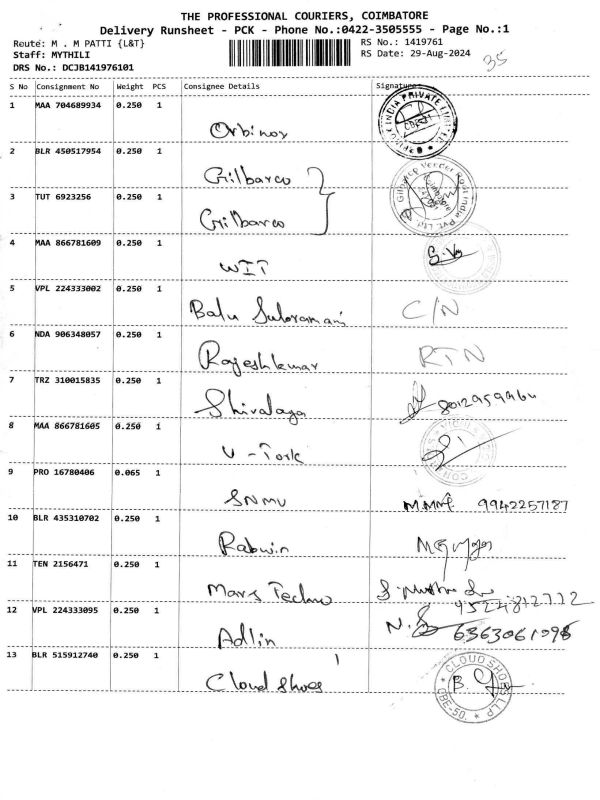 THE PROFESSIONAL COURIERS, COIMBATORE
Delivery Runsheet - PCK - Phone No.:0422-3505555 - Page No.:1
Reute: M . M PATTI {L&T}
Staff: MYTHILI
DRS No.: DCJB141976101
RS No.: 1419761
RS Date: 29-Aug-2024
35
S No Consignment No Weight PCS Consignee Details Signature
1 MAA 704689934 0.250 1
Orbinox
2 BLR 450517954 0.250 1
Gilbarco
3 TUT 6923256 0.250 1
Gilbarco
4 MAA 866781609 0.250 1
WIT
5 VPL 224333002 0.250 1
Balu Subramani C/N
6 NDA 906348057 0.250 1
Rajeshkumar RTN
7 TRZ 310015835 0.250 1
Shivalaya 8012959964
8 MAA 866781605 0.250 1
U-Tork
9 PRO 16780406 0.065 1
SNMV 9942257187
10 BLR 435310702 0.250 1
Rabwin
11 TEN 2156471 0.250 1
Mars Techno
12 VPL 224333095 0.250 1
Adlin
13 BLR 515912740 0.250 1
Cloud Shoes
CLOUD SHOES LLP
CBE-50.